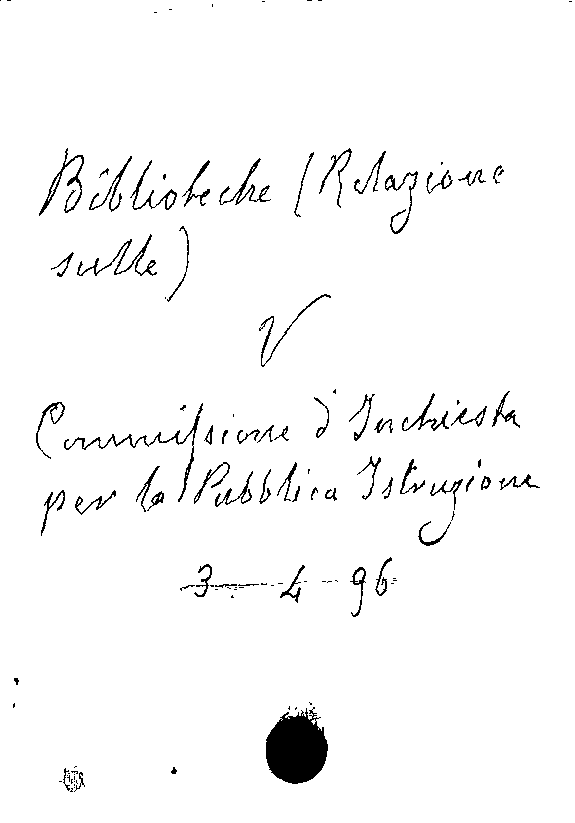 Biblioteche (Relazione
sulle)
V
Commissione d'Inchiesta
per la Pubblica Istruzione
3 - 4 - 96